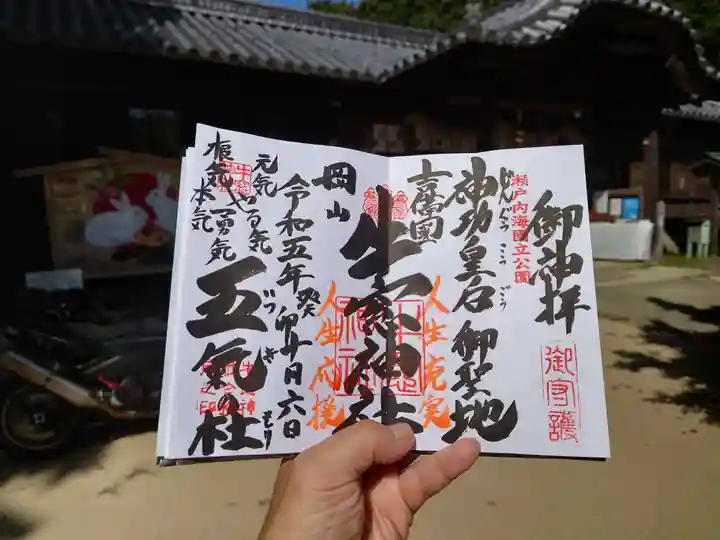 御神拝
御守護
瀬戸内海国立公園
神功皇后御聖地
じんぐうこうごう
吉備国
人生充実
牛窓神社
岡山
人生応援
令和五年癸卯十月六日
元気
やる気
勇気
根気
本気
五氣の杜
いつきもり